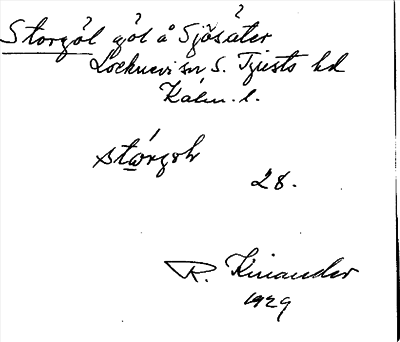 Storgöl göl å Sjösäter
Locknevi sn S. Tjusts hd
Kalm. l.
stórgöl
28.
R. Kinander
1929